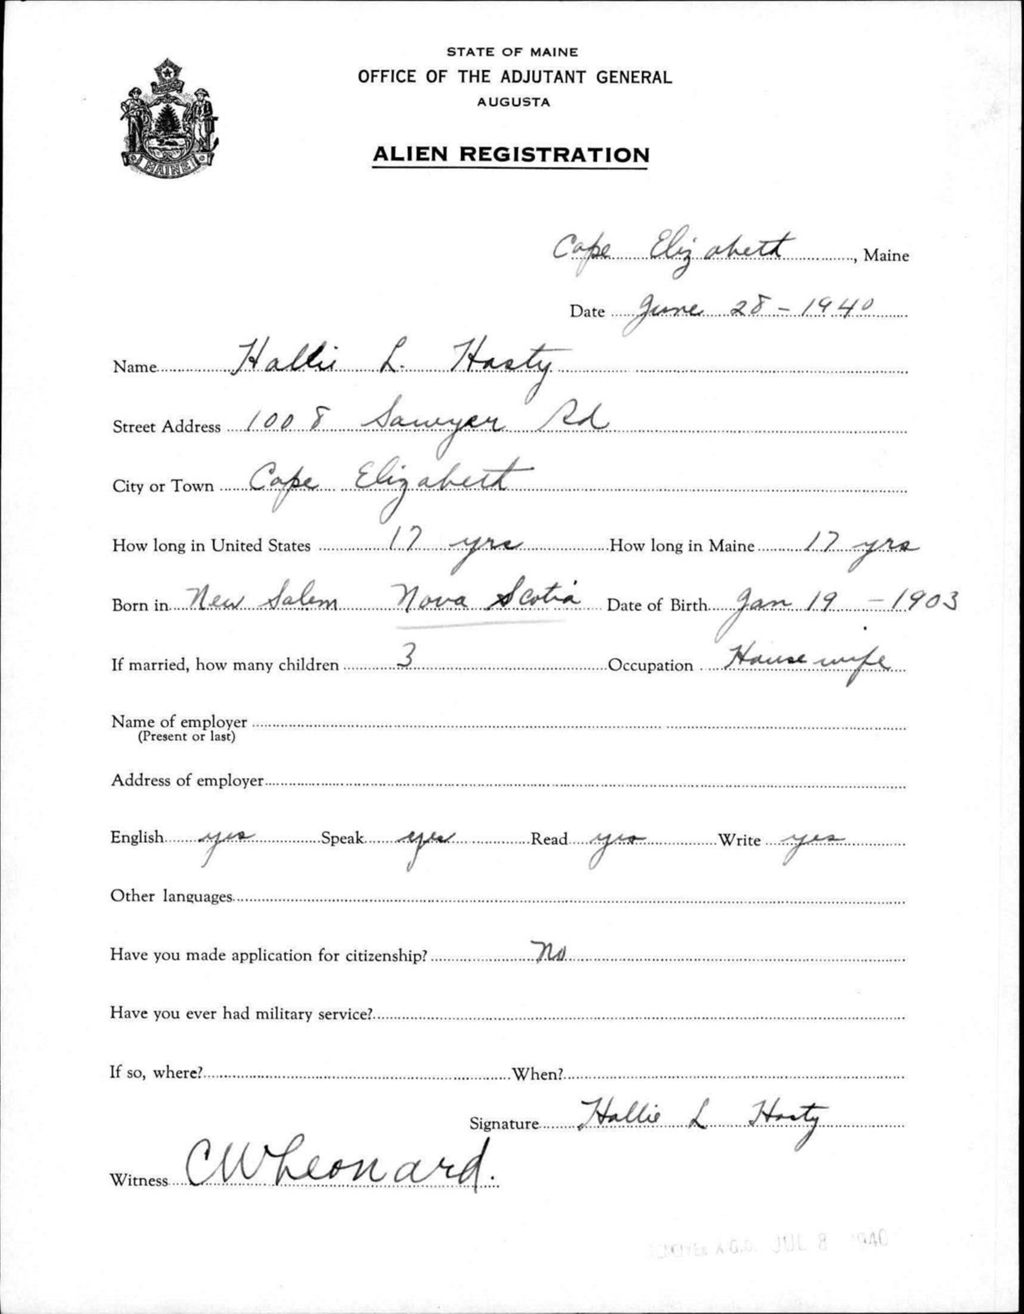 STATE OF MAINE
OFFICE OF THE ADJUTANT GENERAL
AUGUSTA
ALIEN REGISTRATION
MAINE
Cape Elizabeth, Maine
Date June 28 - 1940
Name Hallie L. Hasty
Street Address 1008 Sawyer Rd
City or Town Cape Elizabeth
How long in United States 17 yrs How long in Maine 17 yrs
Born in New Salem Nova Scotia Date of Birth Jan 19 - 1903
If married, how many children 3 Occupation House wife
Name of employer
(Present or last)
Address of employer
English yes Speak yes Read yes Write yes
Other languages
Have you made application for citizenship? No
Have you ever had military service?
If so, where? When?
Signature Hallie L Hasty
Witness CW Leonard.
A.G.O. JUL 8 1940